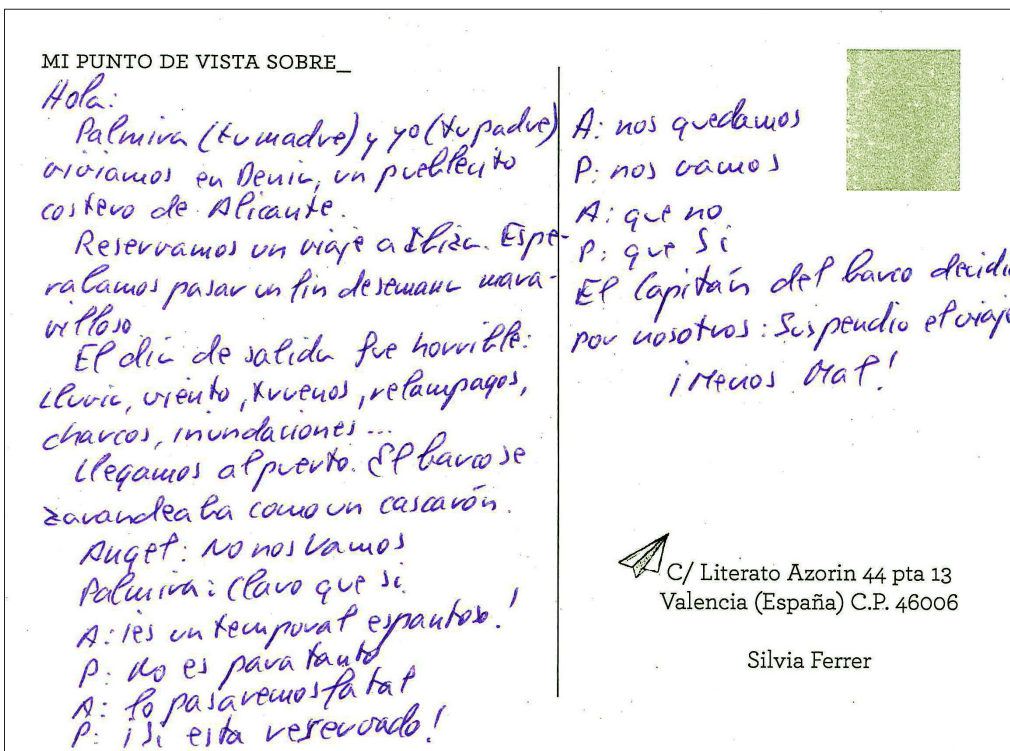 MI PUNTO DE VISTA SOBRE_
Hola:
Palmira (tu madre) y yo (tu padre)
viviamos en Denia, un pueblecito
costero de Alicante.
Reservamos un viaje a Ibiza. Espe-
rabamos pasar un fin de semana mara-
villoso.
El dia de salida fue horrible:
Lluvia, viento, truenos, relampagos,
charcos, inundaciones...
Llegamos al puerto. El barco se
zarandeaba como un cascarón.
Angel: No nos vamos
Palmira: Claro que si
A: ¡es un temporal espantoso!
P: No es para tanto
A: lo pasaremos fatal
P: ¡Si esta reservado!
A: nos quedamos
P: nos vamos
A: que no
P: que Si
El Capitán del barco decidio
por nosotros: Suspendio el viaje
¡Menos Mal!
C/ Literato Azorin 44 pta 13
Valencia (España) C.P. 46006
Silvia Ferrer